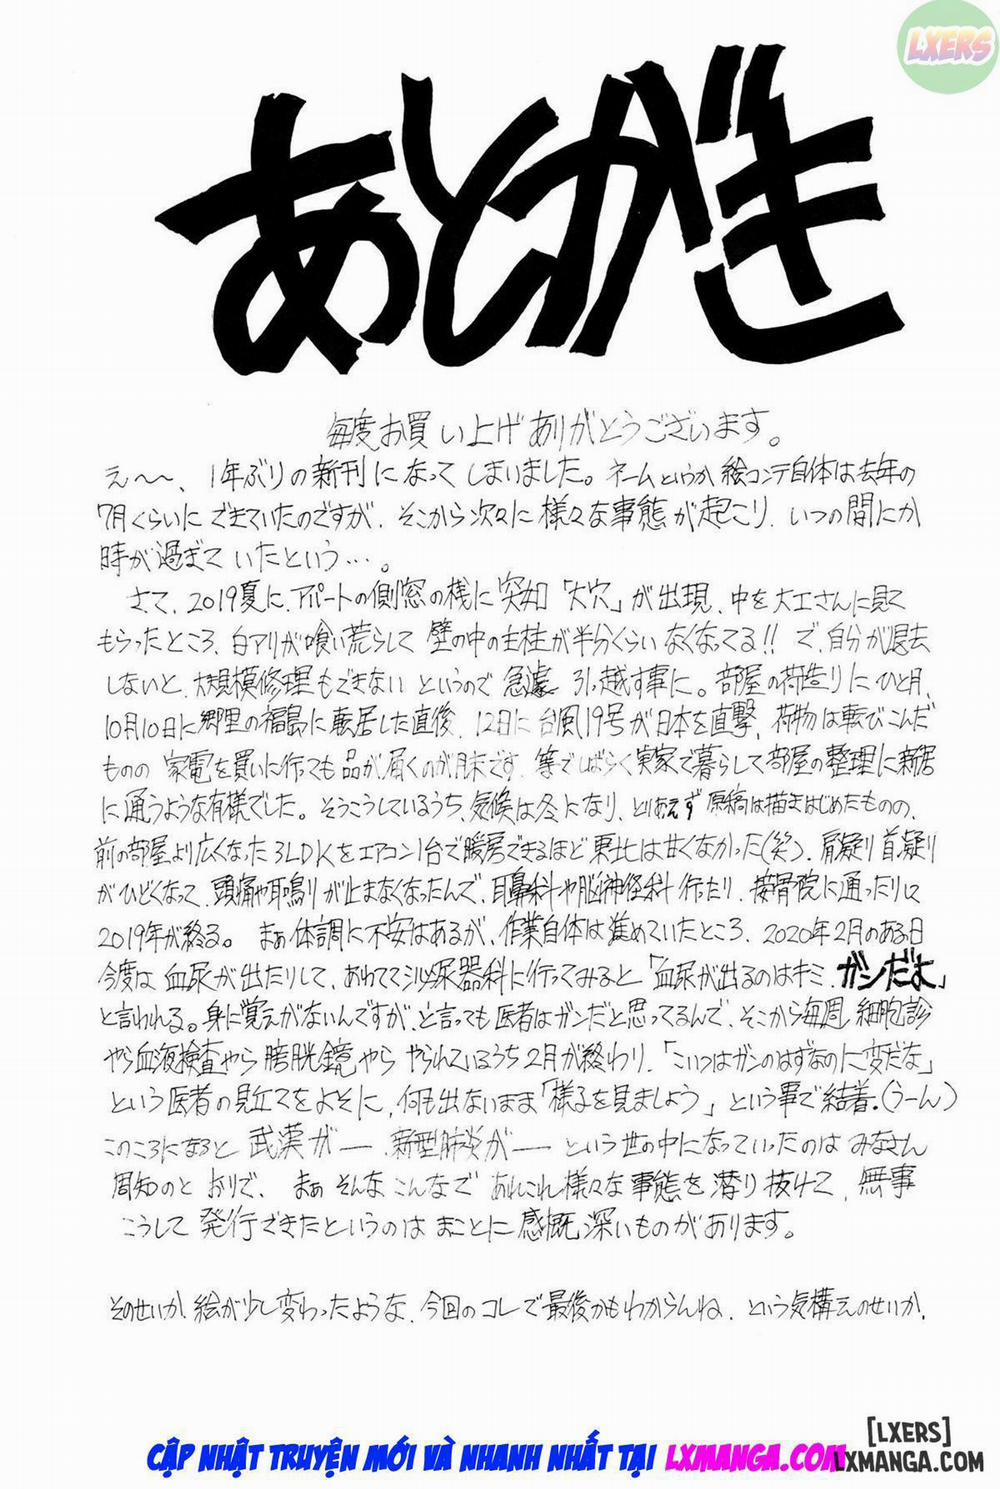 LXERS
あとがき
毎度お買い上げありがとうございます。
え〜〜、1年ぶりの新刊になってしまいました。ネームというか絵コンテ自体は去年の
7月くらいにできていたのですが、そこから次々に様々な事態が起こり、いつの間にか
時が過ぎていたという…。
さて、2019夏に、アパートの側窓の桟に突如「大穴」が出現、中を大工さんに見て
もらったところ、白アリが喰い荒らして壁の中の主柱が半分くらいなくなってる!!で、自分が退去
しないと、大規模修理もできないというので急遽引っ越す事に。部屋の荷造りにひと月、
10月10日に郷里の福島に転居した直後、12日に台風19号が日本を直撃、荷物は転びこんだ
ものの家電を買いに行っても品が届くのが月末です、等でしばらく実家で暮らして部屋の整理に新居
に通うような有様でした。そうこうしているうち、気候は冬になり、とりあえず原稿は描きはじめたものの、
前の部屋より広くなった3LDKをエアコン1台で暖房できるほど東北は甘くなかった(笑)、肩凝り首凝り
がひどくなって、頭痛や耳鳴りが止まなくなったんで、耳鼻科や脳神経科行ったり、接骨院に通ったりして
2019年が終る。まぁ体調に不安はあるが、作業自体は進めていたところ、2020年2月のある日
今度は血尿が出たりして、あわてて泌尿器科に行ってみると「血尿が出るのはキミ、ガンだよ」
と言われる。身に覚えがないんですが、と言っても医者はガンだと思ってるんで、そこから毎週細胞診
やら血液検査やら膀胱鏡やらやられているうち2月が終わり、「こいつはガンのはずなのに変だな」
という医者の見立てをよそに、何も出ないまま「様子を見ましょう」という事で結着。(うーん)
このころになると武漢がー新型肺炎がーという世の中になっていったのはみなさん
周知のとおりで、まぁそんなこんなであれこれ様々な事態を潜り抜けて、無事
こうして発行できたというのはまことに感慨深いものがあります。
そのせいか、絵が少し変わったような、今回のコレで最後かもわからんね、という気構えのせいか、
[LXERS]
CẬP NHẬT TRUYỆN MỚI VÀ NHANH NHẤT TẠI LXMANGA.COM
LXMANGA.COM